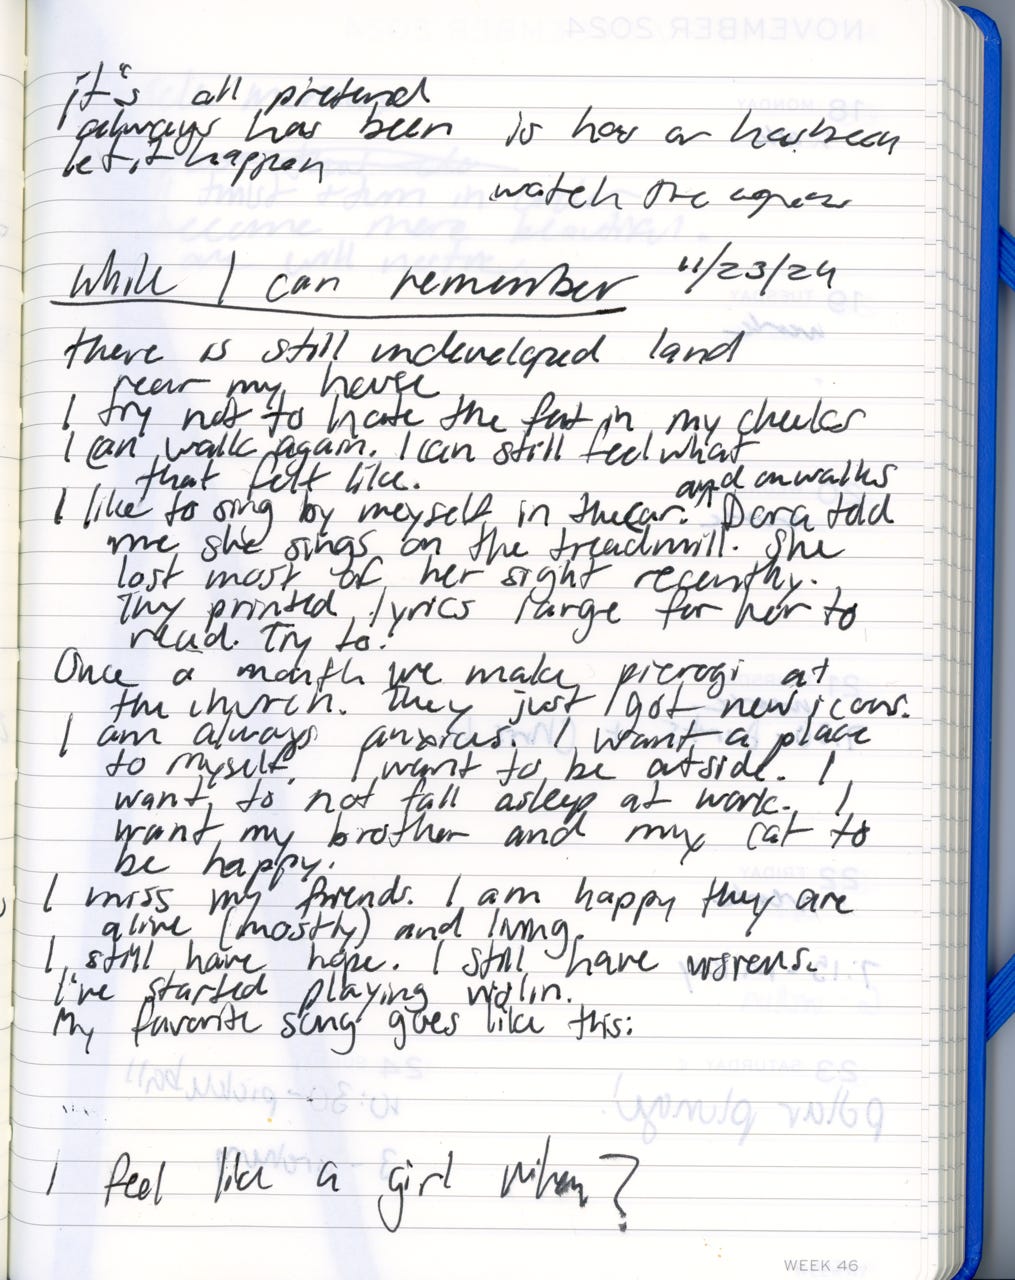 it's all pretend
always has been is how or has been
let it happen
watch the
While I can remember 11/23/24
there is still undeveloped land
near my house
I try not to hate the fat in my cheeks
I can walk again. I can still feel what
that felt like.
and on walks
I like to sing by meyself in the car. Dora told
me she sings on the treadmill. She
lost most of her sight recently.
They printed lyrics large for her to
read. Try to.
Once a month we make pierogi at
the church. They just got new icons.
I am always anxious. I want a place
to myself. I want to be outside. I
want to not fall asleep at work. I
want my brother and my cat to
be happy.
I miss my friends. I am happy they are
alive (mostly) and living.
I still have hope. I still have
I've started playing violin.
My favorite song goes like this:
I feel like a girl when?
WEEK 46